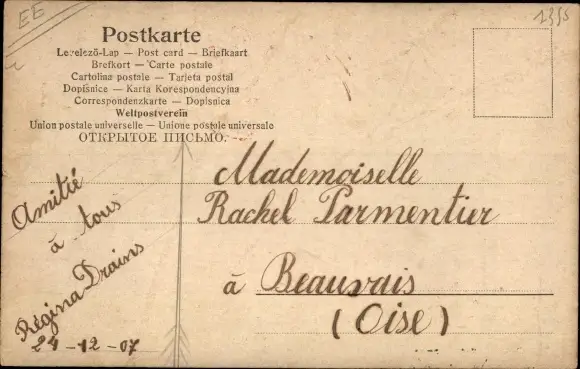 EE
1355
Postkarte
Levelező-Lap — Post card — Briefkaart
Brefkort — Carte postale
Cartolina postale — Tarjeta postal
Dopisnice — Karta Korespondencyjna
Correspondenzkarte — Dopisnica
Weltpostverein
Union postale universelle — Unione postale universale
ОТКРЫТОЕ ПИСЬМО.
Mademoiselle
Rachel Parmentier
à Beauvais
(Oise)
Amitié
à tous
Régina Drains
24-12-07